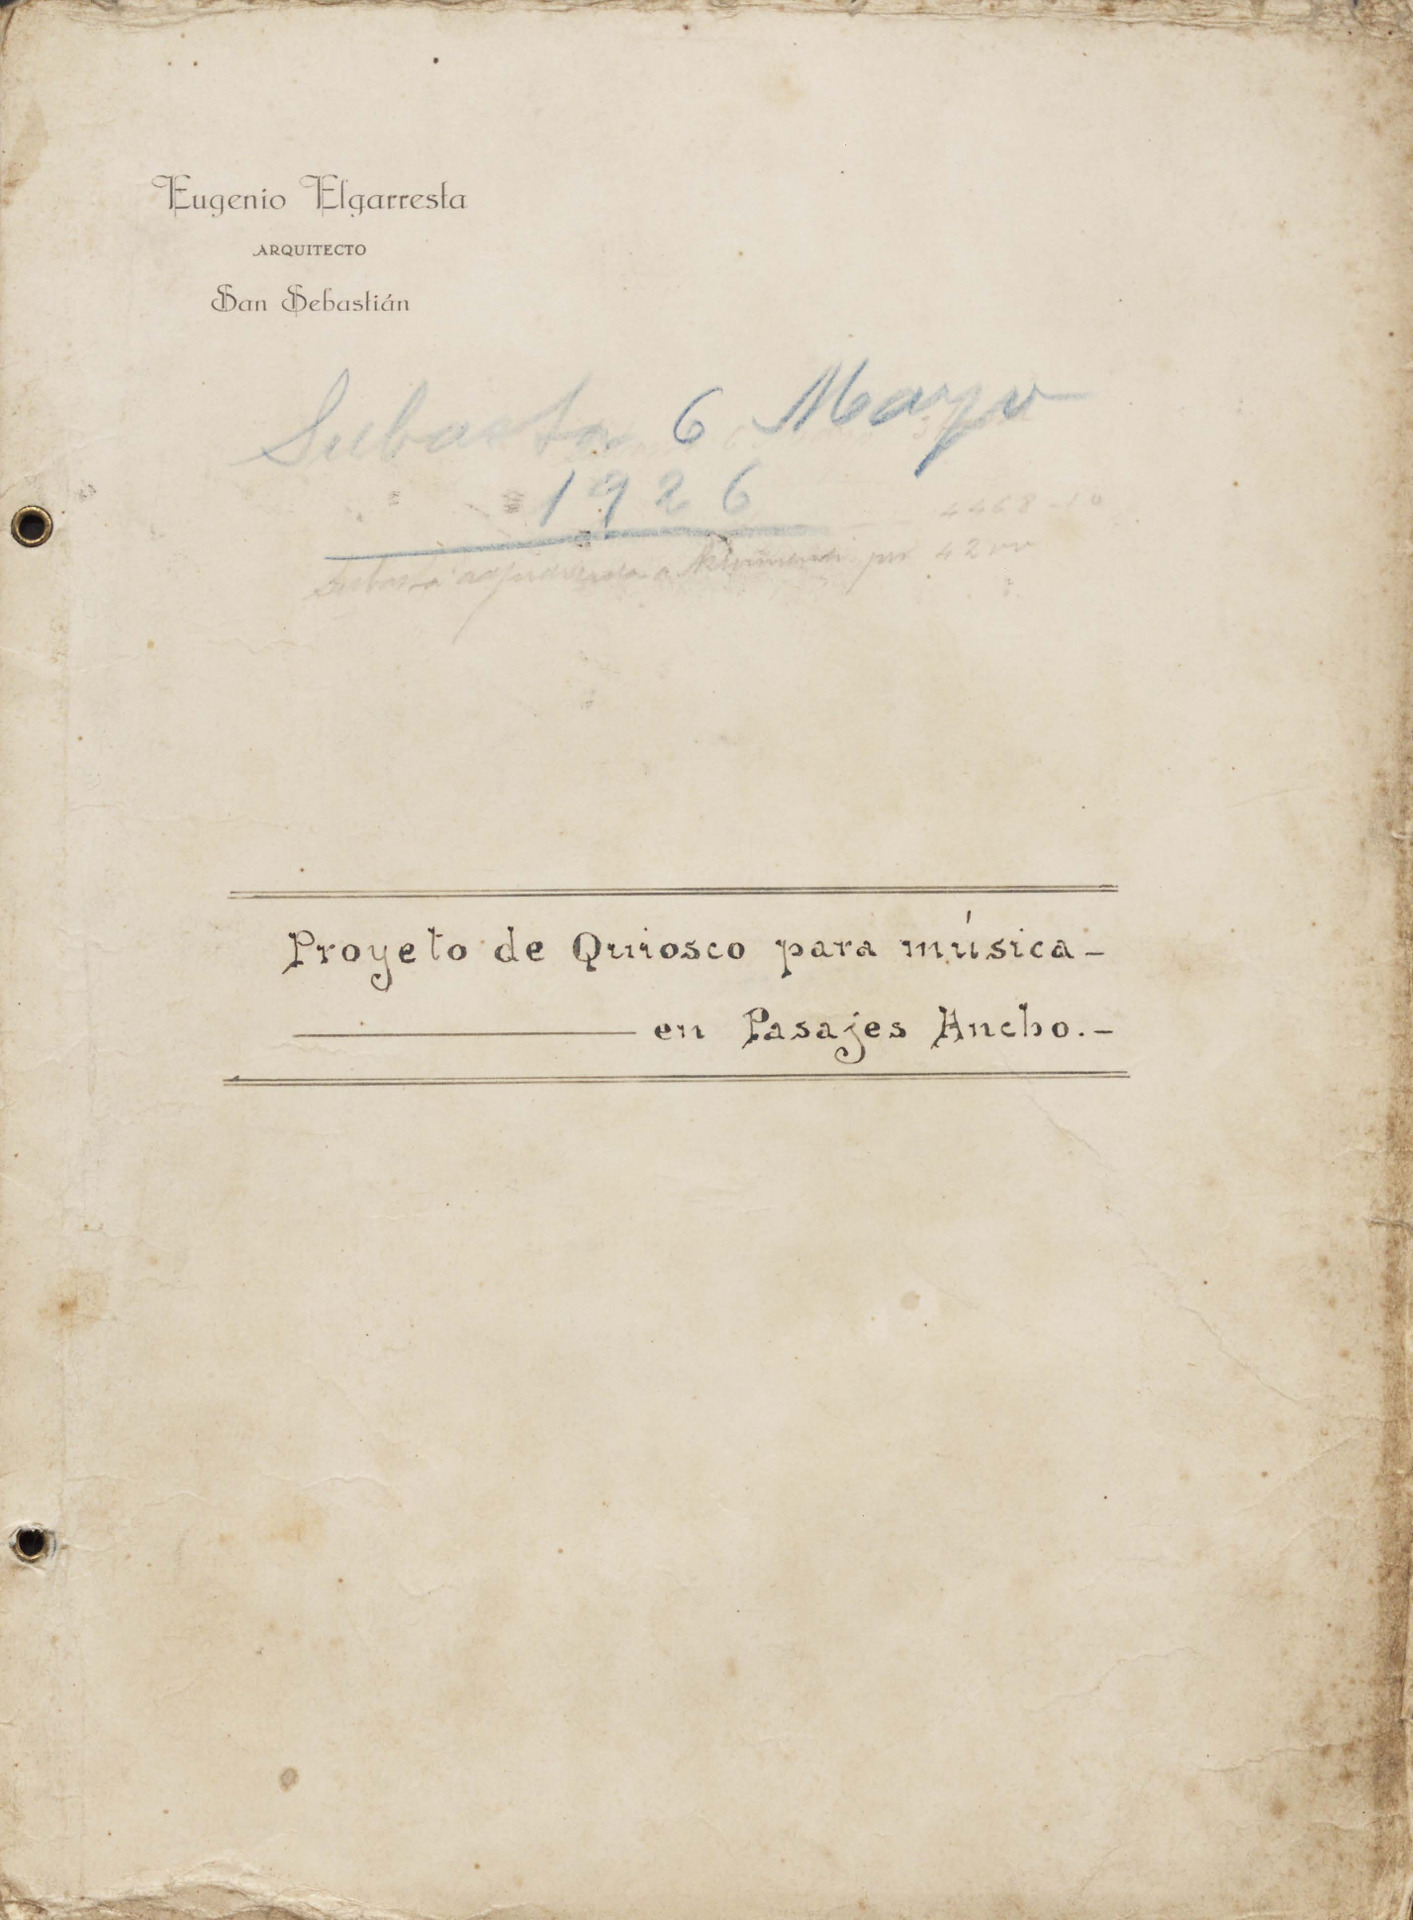 Eugenio Elgarresta
ARQUITECTO
San Sebastián
Subasta 6 Marzo
1926
4468-10
Subasta adjudicada a por 4200
Proyeto de Quiosco para música-
en Pasajes Ancho.-